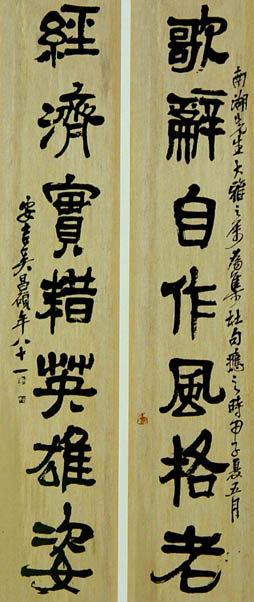 歌辭自作風格老
南湖先生大雅之屬為集杜句應之時甲子夏五月
經濟實耤英雄姿
安吉吳昌碩年八十一